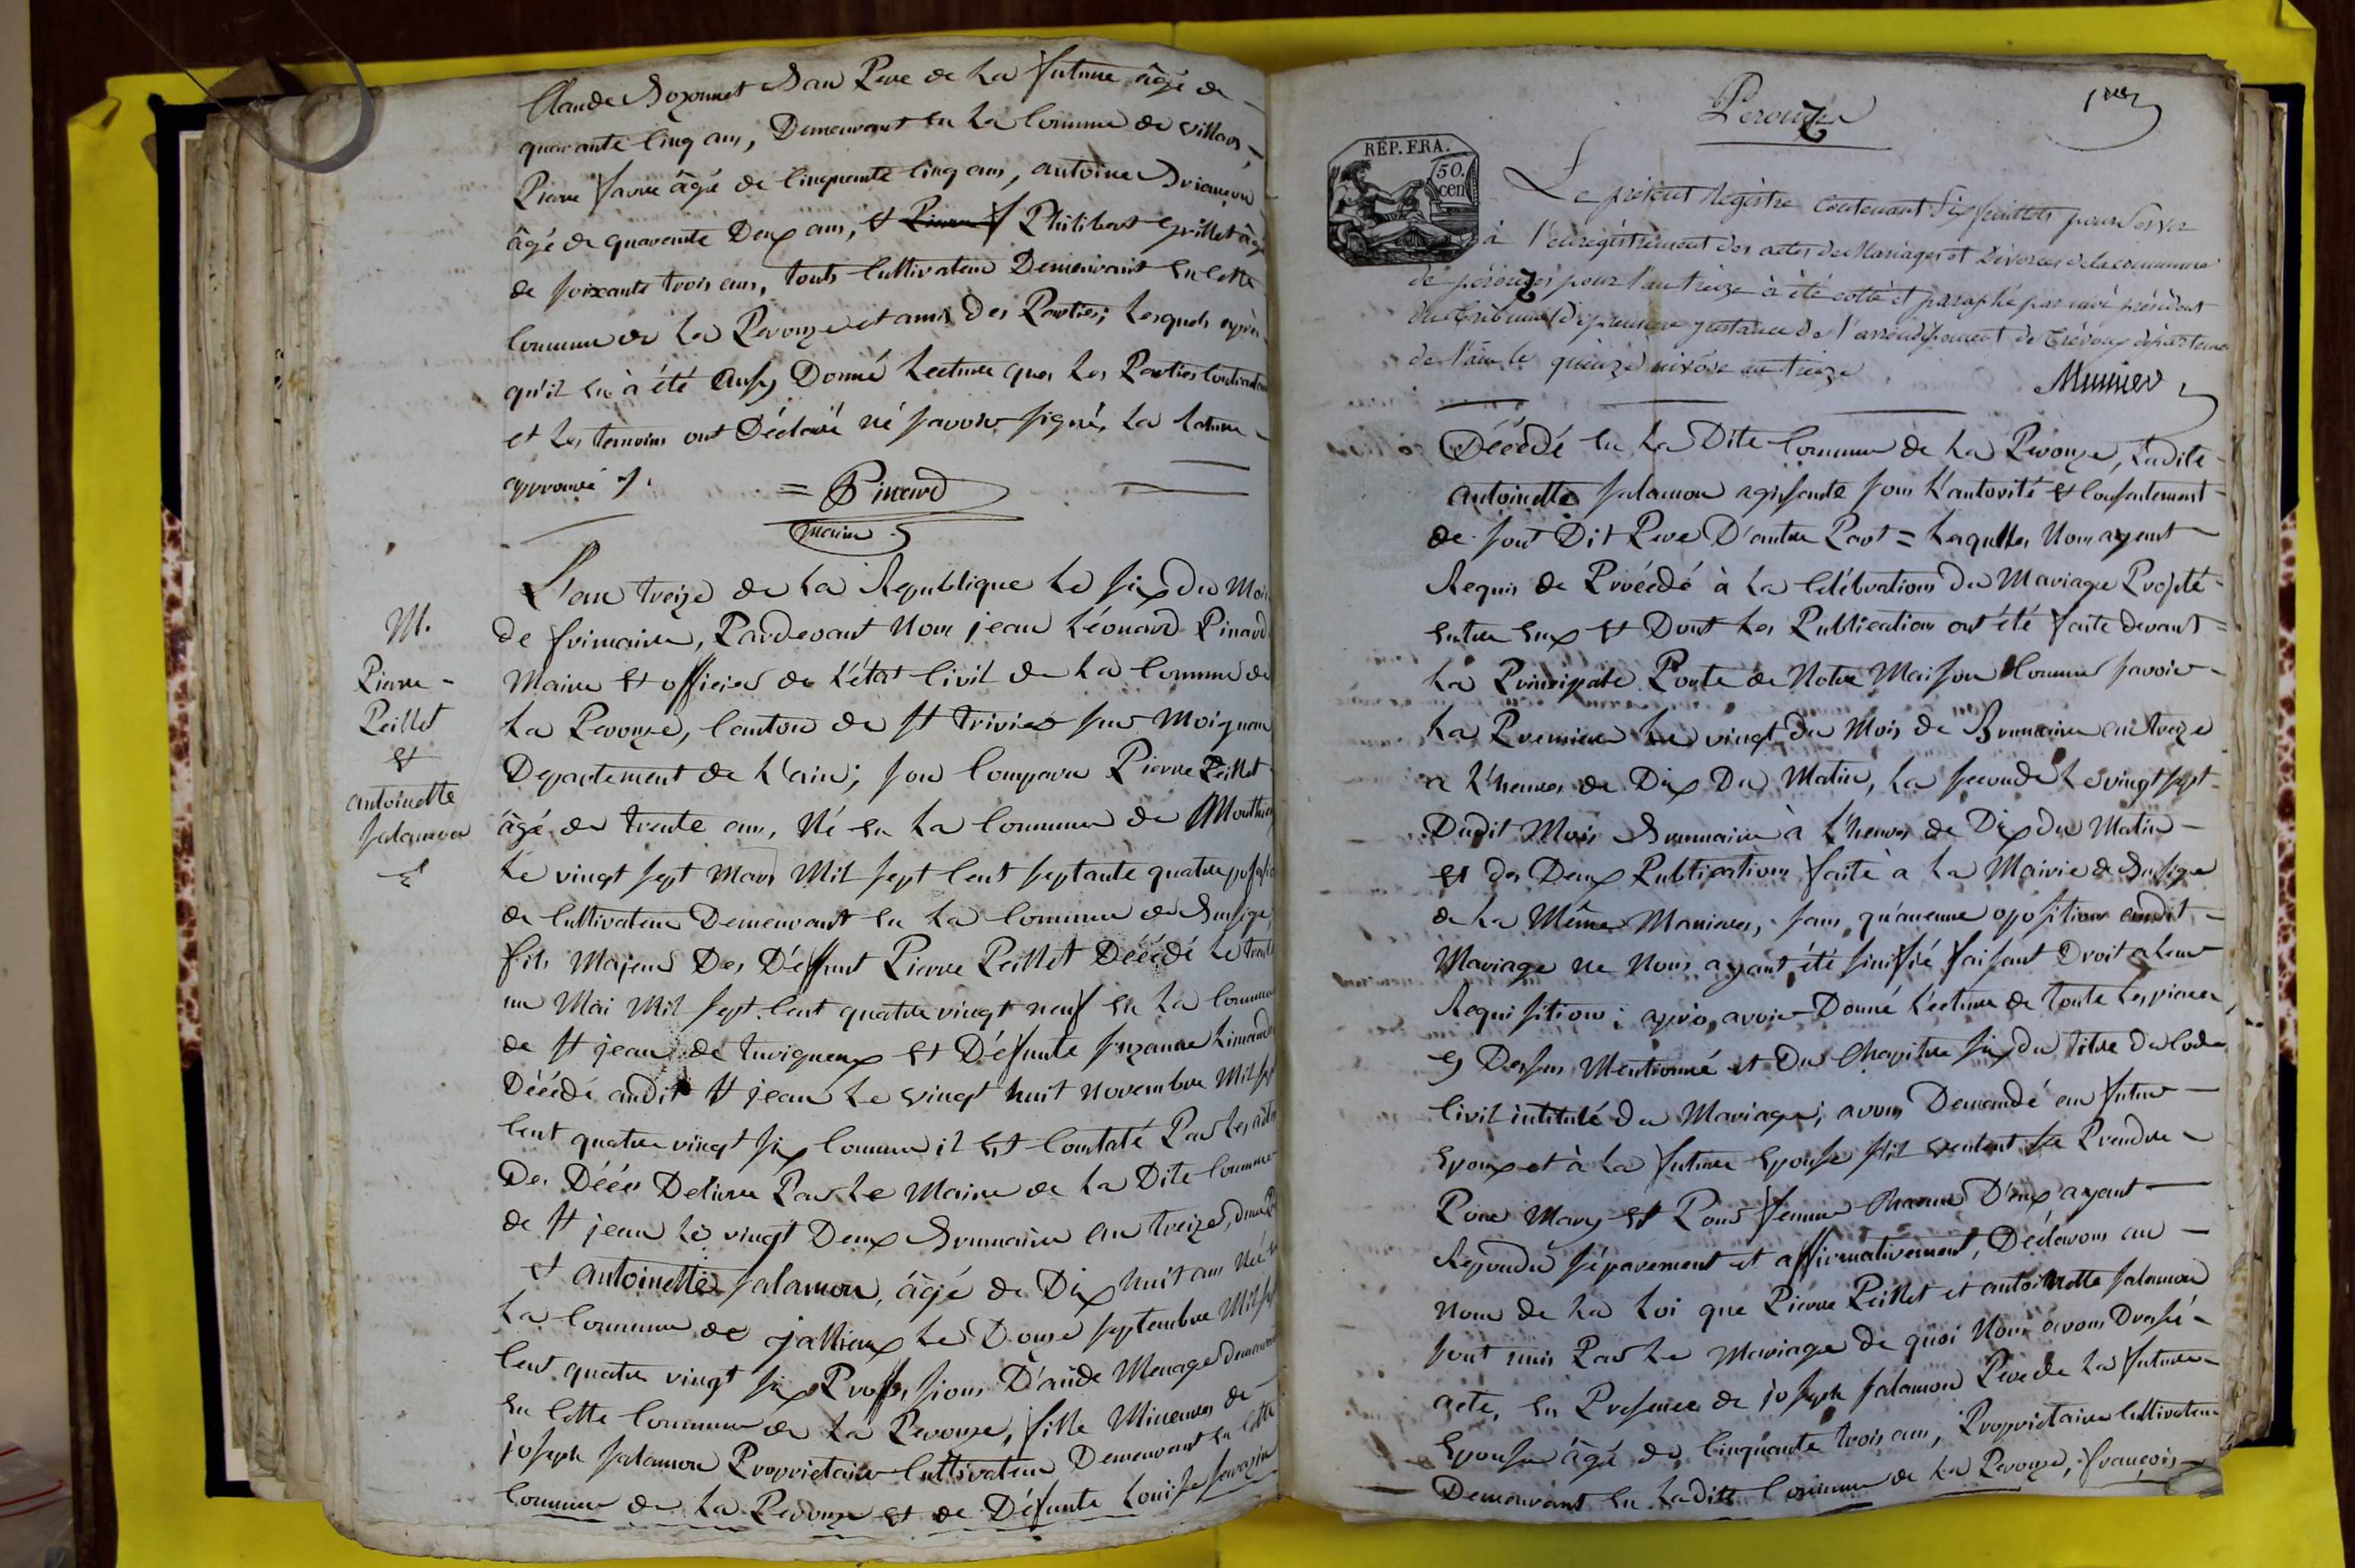 Claude Bozonnet Bau Pere de La future âgé de
quarante Cinq ans, Demeurant En La Commune de villars,
Pierre favre âgé de Cinquante Cinq ans, antoine Briançon
âgé de quarante Deux ans, Et Pierre f Philibert Grillet âgé
de soixante trois ans, touts Cultivateur Demeurant En Cette
Commune de La Perouze et amis Des Parties; Lesquels après
qu'il En à été Ausy Donné Lecture que Les Parties Contractan
et Les temoins ont Déclaré né savoir signé, La rature
approuvé ./.
= Pinard
maire
L'an treize de La Republique Le six du Mois
de frimaire, Pardevant Nous jean Léonard Pinard
Maire Et officier de L'état Civil de La Commune de
La Perouze, Canton de St trivier sur Moignan
Departement de L'ain; son Comparu Pierre Peillet
âgé de trente ans, Né En La Commune de Monthieu
Le vingt sept Mars Mil sept Cent septante quatre profession
de Cultivateur Demeurant En La Commune de Bussige
fils Majeur Des Déffunt Pierre Peillet Décédé Le trente
un Mai Mil sept Cent quatre vingt neuf En La Commune
de St jean de turigneux Et Défunte suzanne Limandas
Décédé audit St jean Le vingt huit novembre Mil sept
Cent quatre vingt six Comme il Est Constaté Par Les actes
Des Décés Delivré Par Le Maire de La Dite Commune
de St jean Le vingt Deux Brumaire an treize, d'une Part
Et antoinette salamon, âgé de Dix huit ans Née En
La Commune de jallieux Le Douze septembre Mil sept
Cent quatre vingt six Professions D'aide Menage demeurant
En Cette Commune de La Perouze, fille Mineures de
joseph salamon Proprietaire Cultivateur Demeurant En Cette
Commune de La Perouze Et de Défunte Louise sarazin
M.
Pierre
Peillet
Et
antoinette
salamon
Perouzes
1er
RÉP. FRA.
50.
cen
Le présent Registre contenant six feuillets pour servir
à l'enregistrement des actes de Mariages et Divorces de la commune
de pérouzes pour l'an treize à été cotté et paraphé par nous président
du tribunal de premiere jnstance de l'arrondissement de trévoux département
de l'ain le quinze nivôse an treize
Munier
Décédé En La Dite Commune de La Perouze, Ladite
antoinette salamon agissante sous L'autorité Et Consentement
de sont Dit Pere D'autre Part = Lesquelles Nous ayent
Requis de Procédé à La Célébrations du Mariage Projeté
Entre Eux Et Dont Les Publication ont été faite devant
La Principale Porte de Notre Maison Commune savoir
La Premiere Le vingt du Mois de Brumaire an treize
a L'heures de Dix Du Matin, La seconde Le vingt sept
Dudit Mois Brumaire à L'heures de Dix du Matin
Et des Deux Publications faite à La Mairie de Bussige
de La Même Manieres, sans qu'aucune oposition audit
Mariage ne Nous ayant été sinifié faisant Droit a Leur
Requisitions; après avoir Donné Lecture de toute Les pieces
Cy Dessus Mentionné et Du Chapitre six du titre du Code
Civil intitulé du Mariage; avons Demandé au futur
Epoux et à La future Epouse s'il veulent se Prendre
Pour Mary Et Pour femme Chacun D'eux ayant
Repondu séparement et affirmativement, Déclarons au
Nom de La Loi que Pierre Peillet et antoinette salamon
sont unis Par Le Mariage de quoi Nous avons Dressé
acte, En Presence de joseph salamon Pere de La future
Epouse âgé de Cinquante trois ans, Proprietaire Cultivateur
Demeurant En Ladite Commune de La Perouze, françois